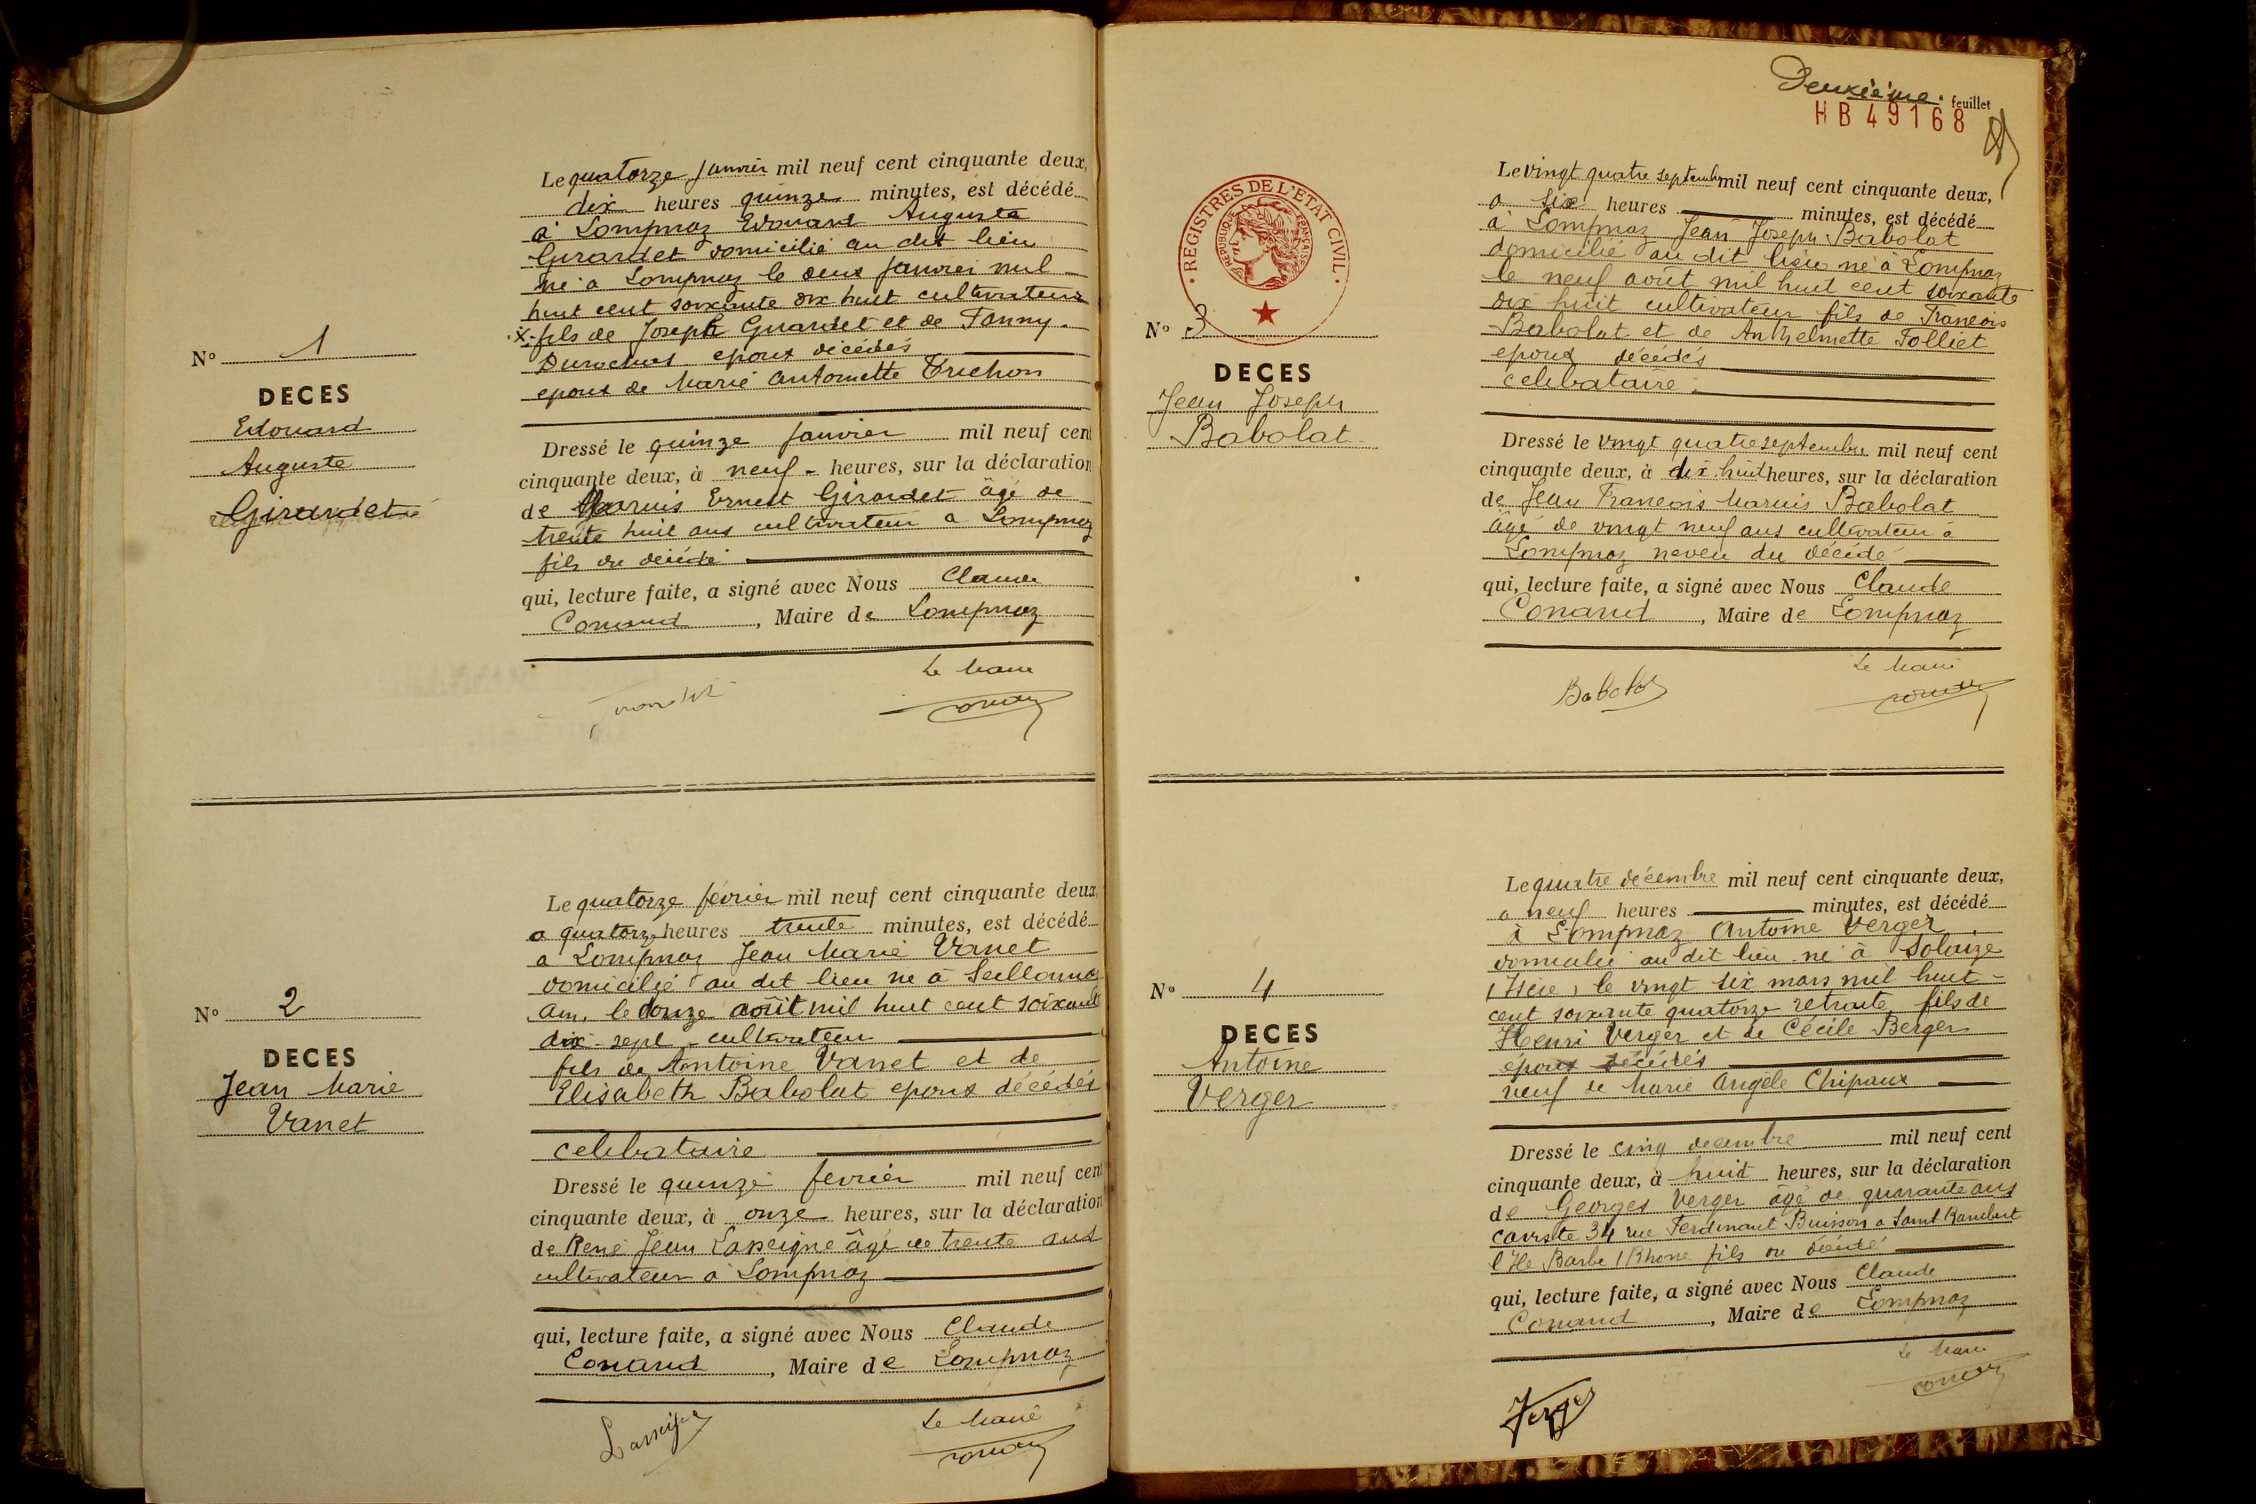 N° 1
DECES
Edouard
Auguste
Girardet
Le quatorze Janvier mil neuf cent cinquante deux,
dix heures quinze minutes, est décédé
à Lompnaz Edouard Auguste
Girardet domicilié au dit lieu
né à Lompnaz le deux Janvier mil
huit cent soixante dix huit cultivateur
fils de Joseph Girardet et de Fanny
Durochat epoux décédés
epoux de Marie Antoinette Trichon
Dressé le quinze Janvier mil neuf cent
cinquante deux, à neuf heures, sur la déclaration
de Marius Ernest Girardet âgé de
trente huit ans cultivateur a Lompnaz
fils du décédé
qui, lecture faite, a signé avec Nous Claude
Conand, Maire de Lompnaz
Le Maire
N° 2
DECES
Jean Marie
Vanet
Le quatorze février mil neuf cent cinquante deux,
a quatorze heures trente minutes, est décédé
a Lompnaz Jean Marie Vanet
domicilié au dit lieu né à Seillonnaz
Ain, le douze août mil huit cent soixante
dix-sept cultivateur
fils de Antoine Vanet et de
Elisabeth Babolat epoux décédés
celibataire
Dressé le quinze fevrier mil neuf cent
cinquante deux, à onze heures, sur la déclaration
de René Jean Lasseigne âgé de trente ans
cultivateur a Lompnaz
qui, lecture faite, a signé avec Nous Claude
Conand, Maire de Lompnaz
Le Maire
Lasseigne
Deuxième feuillet
HB 49168
REGISTRES DE L'ETAT CIVIL
REPUBLIQUE FRANÇAISE
N° 3
DECES
Jean Joseph
Babolat
Le vingt quatre septembre mil neuf cent cinquante deux,
a six heures minutes, est décédé
à Lompnaz Jean Joseph Babolat
domicilié au dit lieu né à Lompnaz
le neuf août mil huit cent soixante
dix huit cultivateur fils de Francois
Babolat et de Anthelmette Folliet
epoux décédés
celibataire
Dressé le vingt quatre septembre mil neuf cent
cinquante deux, à dix huit heures, sur la déclaration
de Jean Francois Marius Babolat
âgé de vingt neuf ans cultivateur à
Lompnaz neveu du décédé
qui, lecture faite, a signé avec Nous Claude
Conand, Maire de Lompnaz
Le Maire
Babolat
N° 4
DECES
Antoine
Verger
Le quatre décembre mil neuf cent cinquante deux,
a neuf heures minutes, est décédé
à Lompnaz Antoine Verger
domicilié au dit lieu né à Solaize
(Isère) le vingt six mars mil huit
cent soixante quatorze retraité fils de
Henri Verger et de Cécile Berger
époux décédés
veuf de Marie Angèle Chipaux
Dressé le cinq decembre mil neuf cent
cinquante deux, à huit heures, sur la déclaration
de Georges Verger âgé de quarante ans
caviste 34 rue Ferdinant Buisson a Saint Rambert
l'Ile Barbe (Rhone fils du décédé
qui, lecture faite, a signé avec Nous Claude
Conand, Maire de Lompnaz
Le Maire
Verger